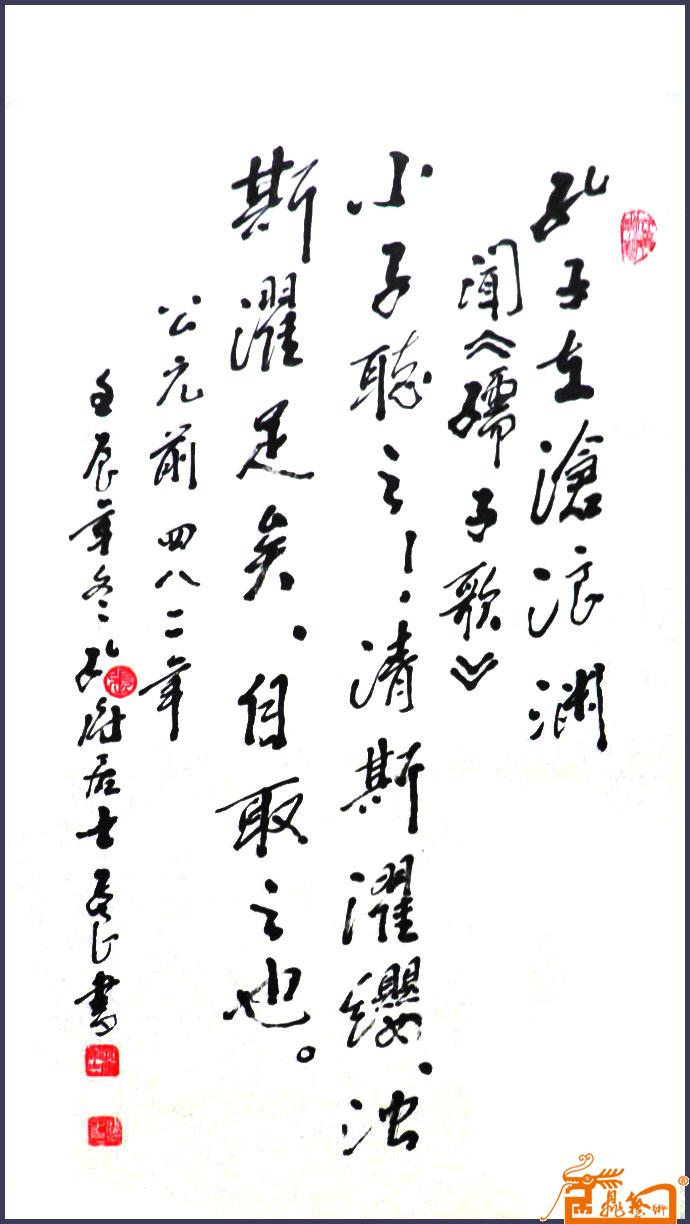 孔子在滄浪渊
闻《孺子歌》
小子聴之！清斯濯纓、浊
斯濯足矣、自取之也。
公元前四八二年
壬辰年冬孔府居士長江書